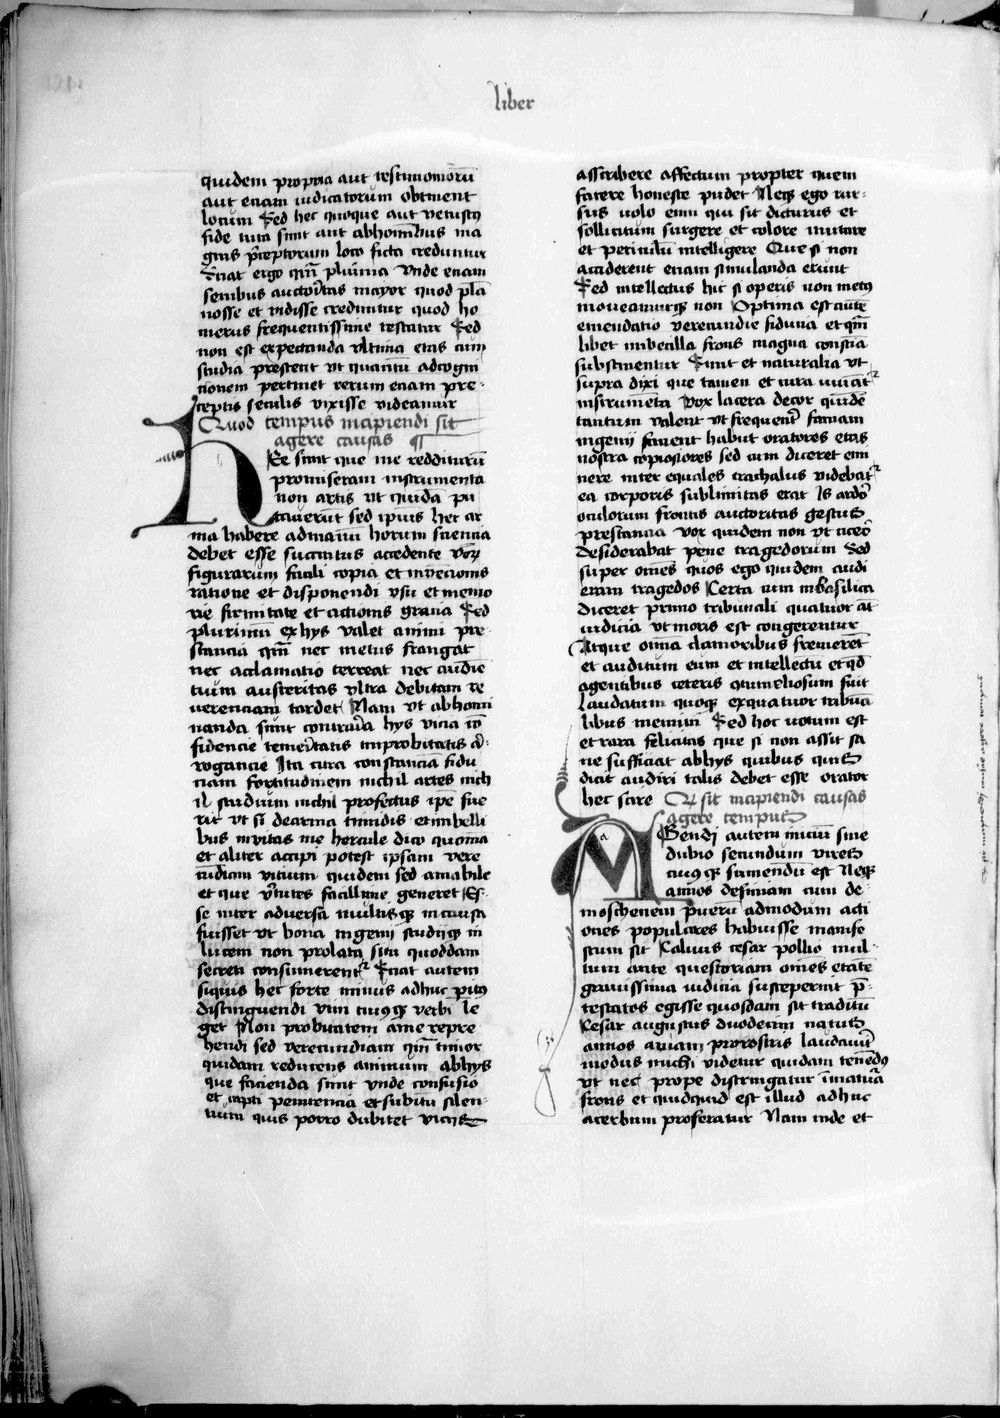 liber
quidem propria aut testimoniorū
aut etiam iudicatorum obtinent
locum Sed hec quoque aut vetustꝯ
fide tuta sunt aut abhominibus ma
gnis p̄ceptorum loco ficta creduntur
Sciat ergo qm̄ plurima vnde etiam
senibus auctoritas mayor quod plā
nosse et vidisse creduntur quod ho
merus frequentissime testatur Sed
non est expectanda vltima etas cum
studia prestent vt quantū adcogni
tionem pertinet rerum etiam pre-
ceptis seculis vixisse videamur
Quod tempus incipiendi sit
agere causas
hEc sunt que me redditurū
promiseram instrumenta
non artis vt quidā pu
tauerūt sed ipsius hec ar
ma habere admanū horum sciencia
debet esse succinctus accedente verbo𝔯ꝝ
figurarum facili copia et invēcionis
ratione et disponendi vsu et memo
rie firmitate et actionis gratia Sed
plurimū ex hys valet animi pre-
stancia qm̄ nec metus frangat
nec acclamatio terreat nec audiē
tium austeritas vltra debitam re
uerenciam tardet Nam vt abhomi
nanda sunt contraria hys vicia cō
fidencie temeritatis improbitatis ar-
rogancie Ita citra constanciā fidu
ciam fortitudinem nichil artes nich
il studium nichil profectus ipē fue
rit vt si dearma timidis et imbelli
bus invitus me hercule dico quoniā
et aliter accipi potest ipsam vere
cūdiam vitium quidem sed amabile
et que v̄tutes facillime generet Es-
se inter aduersa multisqꝫ incausa
fuisset vt bona ingenij studiqꝫ in
lucem non prolata situ quoddam
secreti consumerent᷑ Sciat autem
siquis hec forte minus adhuc pitꝯ
distinguendi vim cuiꝯqꝫ verbi le
get Non probitatem ame repre
hendi sed verecundiam qm̄ timor
quidam reducens animum abhys
que facienda sunt vnde confusio
et cepti penitencia et subitū silen-
tium quis porro dubitet vicijs
asscribere affectum propter quem
facere honeste pudet Neqꝫ ego rur-
sus uolo enim qui sit dicturus et
sollicitum surgere et colore mutare
et periculū intelligere Que si non
acciderent etiam simulanda erunt
Sed intellectus hic si operis non metꝯ
moueamurqꝫ non Optima est autē
emendatio verecundie fiducia et qm̄
libet imbecilla frons magna consciā
substinentur Sunt et naturalia vt
supra dixi que tamen et cura iuuāt᷑
instrumēta Vox lacera decor quidē
tantum valent vt frequenter famam
ingenij faciant habuit oratores etas
nostra copiosiores sed cum diceret emi
nere inter equales trachalus videbat᷑
ea corporis sublimitas erat Is ardor
oculorum frontis auctoritas gestus
prestancia vox quidem non vt cicero
desiderabat pene tragedorum Sed
super omēs quos ego quidem audi
eram tragedos Certa cum inbasilica
diceret primo tribunali quatuor āt
iudicia vt moris est congerentur
Atque omīa clamoribus fremerent
et auditum eum et intellectū et qd̄
agentibus ceteris contumeliosum fuit
Laudatum quoqꝫ exquatuor tribuā
libus memini Sed hoc uotum est
et rara felicitas que si non assit sa
ne sufficiat abhys quibus quis
dicit audiri talis debet esse orator
hec scire Q sit incipiendi causas
agere tempus
AGendj autem iniciū sine
dubio secundum vires
cuiusqꝫ sumendū est Neqꝫ
annos definiam cum de-
moschenem puerū admodum acti
ones populares habuisse manife
stum sit Caluus cesar pollio mul-
tum ante questoriam omēs etatē
grauissima iudicia susceperint p̄-
testatos egisse quosdam sit traditū
Cesar augustus duodecim natus
annos auiam prorostris laudauit
modus michi videtur quidam tenēdꝯ
vt nec prope distringatur īmatura
frons et quidquid est illud adhuc
acerbum proferatur Nam inde et